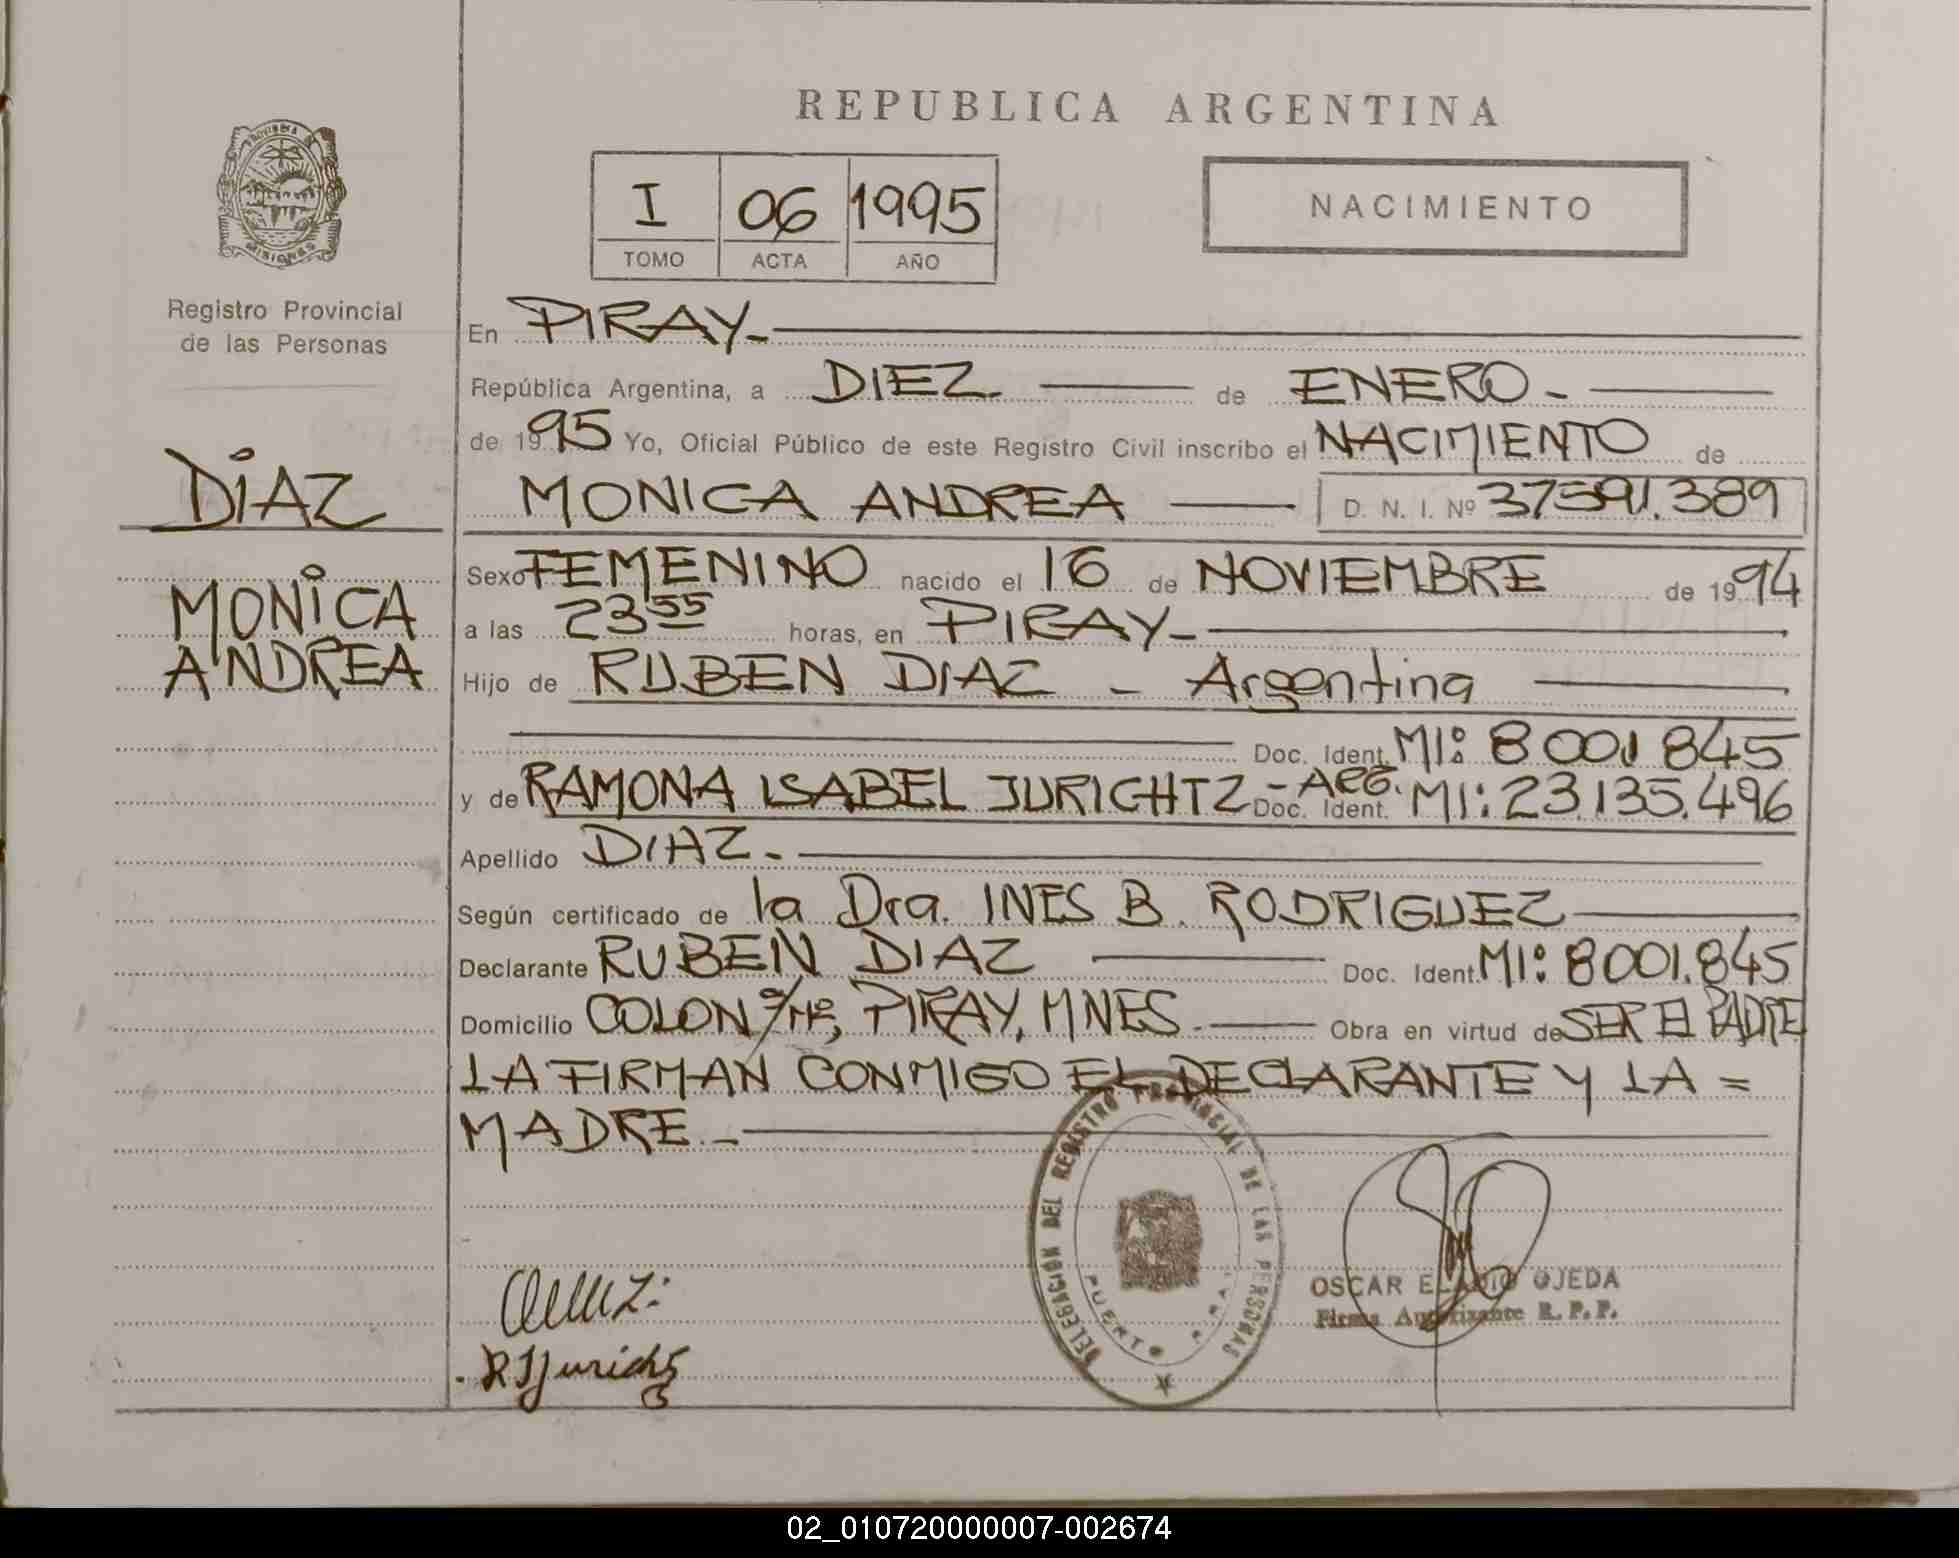 REPUBLICA ARGENTINA
PROVINCIA DE
MISIONES
I 06 1995
TOMO ACTA AÑO
NACIMIENTO
Registro Provincial
de las Personas
DIAZ
MONICA
ANDREA
En PIRAY-
República Argentina, a DIEZ. de ENERO-
de 1995 Yo, Oficial Público de este Registro Civil inscribo el NACIMIENTO de
MONICA ANDREA D. N. I. Nº 37591.389
Sexo FEMENINO nacido el 16 de NOVIEMBRE de 1994
a las 23 55 horas, en PIRAY-
Hijo de RUBEN DIAZ - Argentina
Doc. Ident. MI: 8 001 845
y de RAMONA ISABEL JURICHTZ - ARG. Doc. Ident. MI: 23.135.496
Apellido DIAZ.-
Según certificado de la Dra. INES B. RODRIGUEZ
Declarante RUBEN DIAZ Doc. Ident. MI: 8001.845
Domicilio COLON s/nº, PIRAY, MNES. Obra en virtud de SER EL PADRE
LA FIRMAN CONMIGO EL DECLARANTE Y LA =
MADRE.-
DELEGACIÓN DEL REGISTRO PROVINCIAL DE LAS PERSONAS
PUERTO PIRAY
OSCAR ELADIO OJEDA
Firma Autorizante R. P. P.
02_010720000007-002674